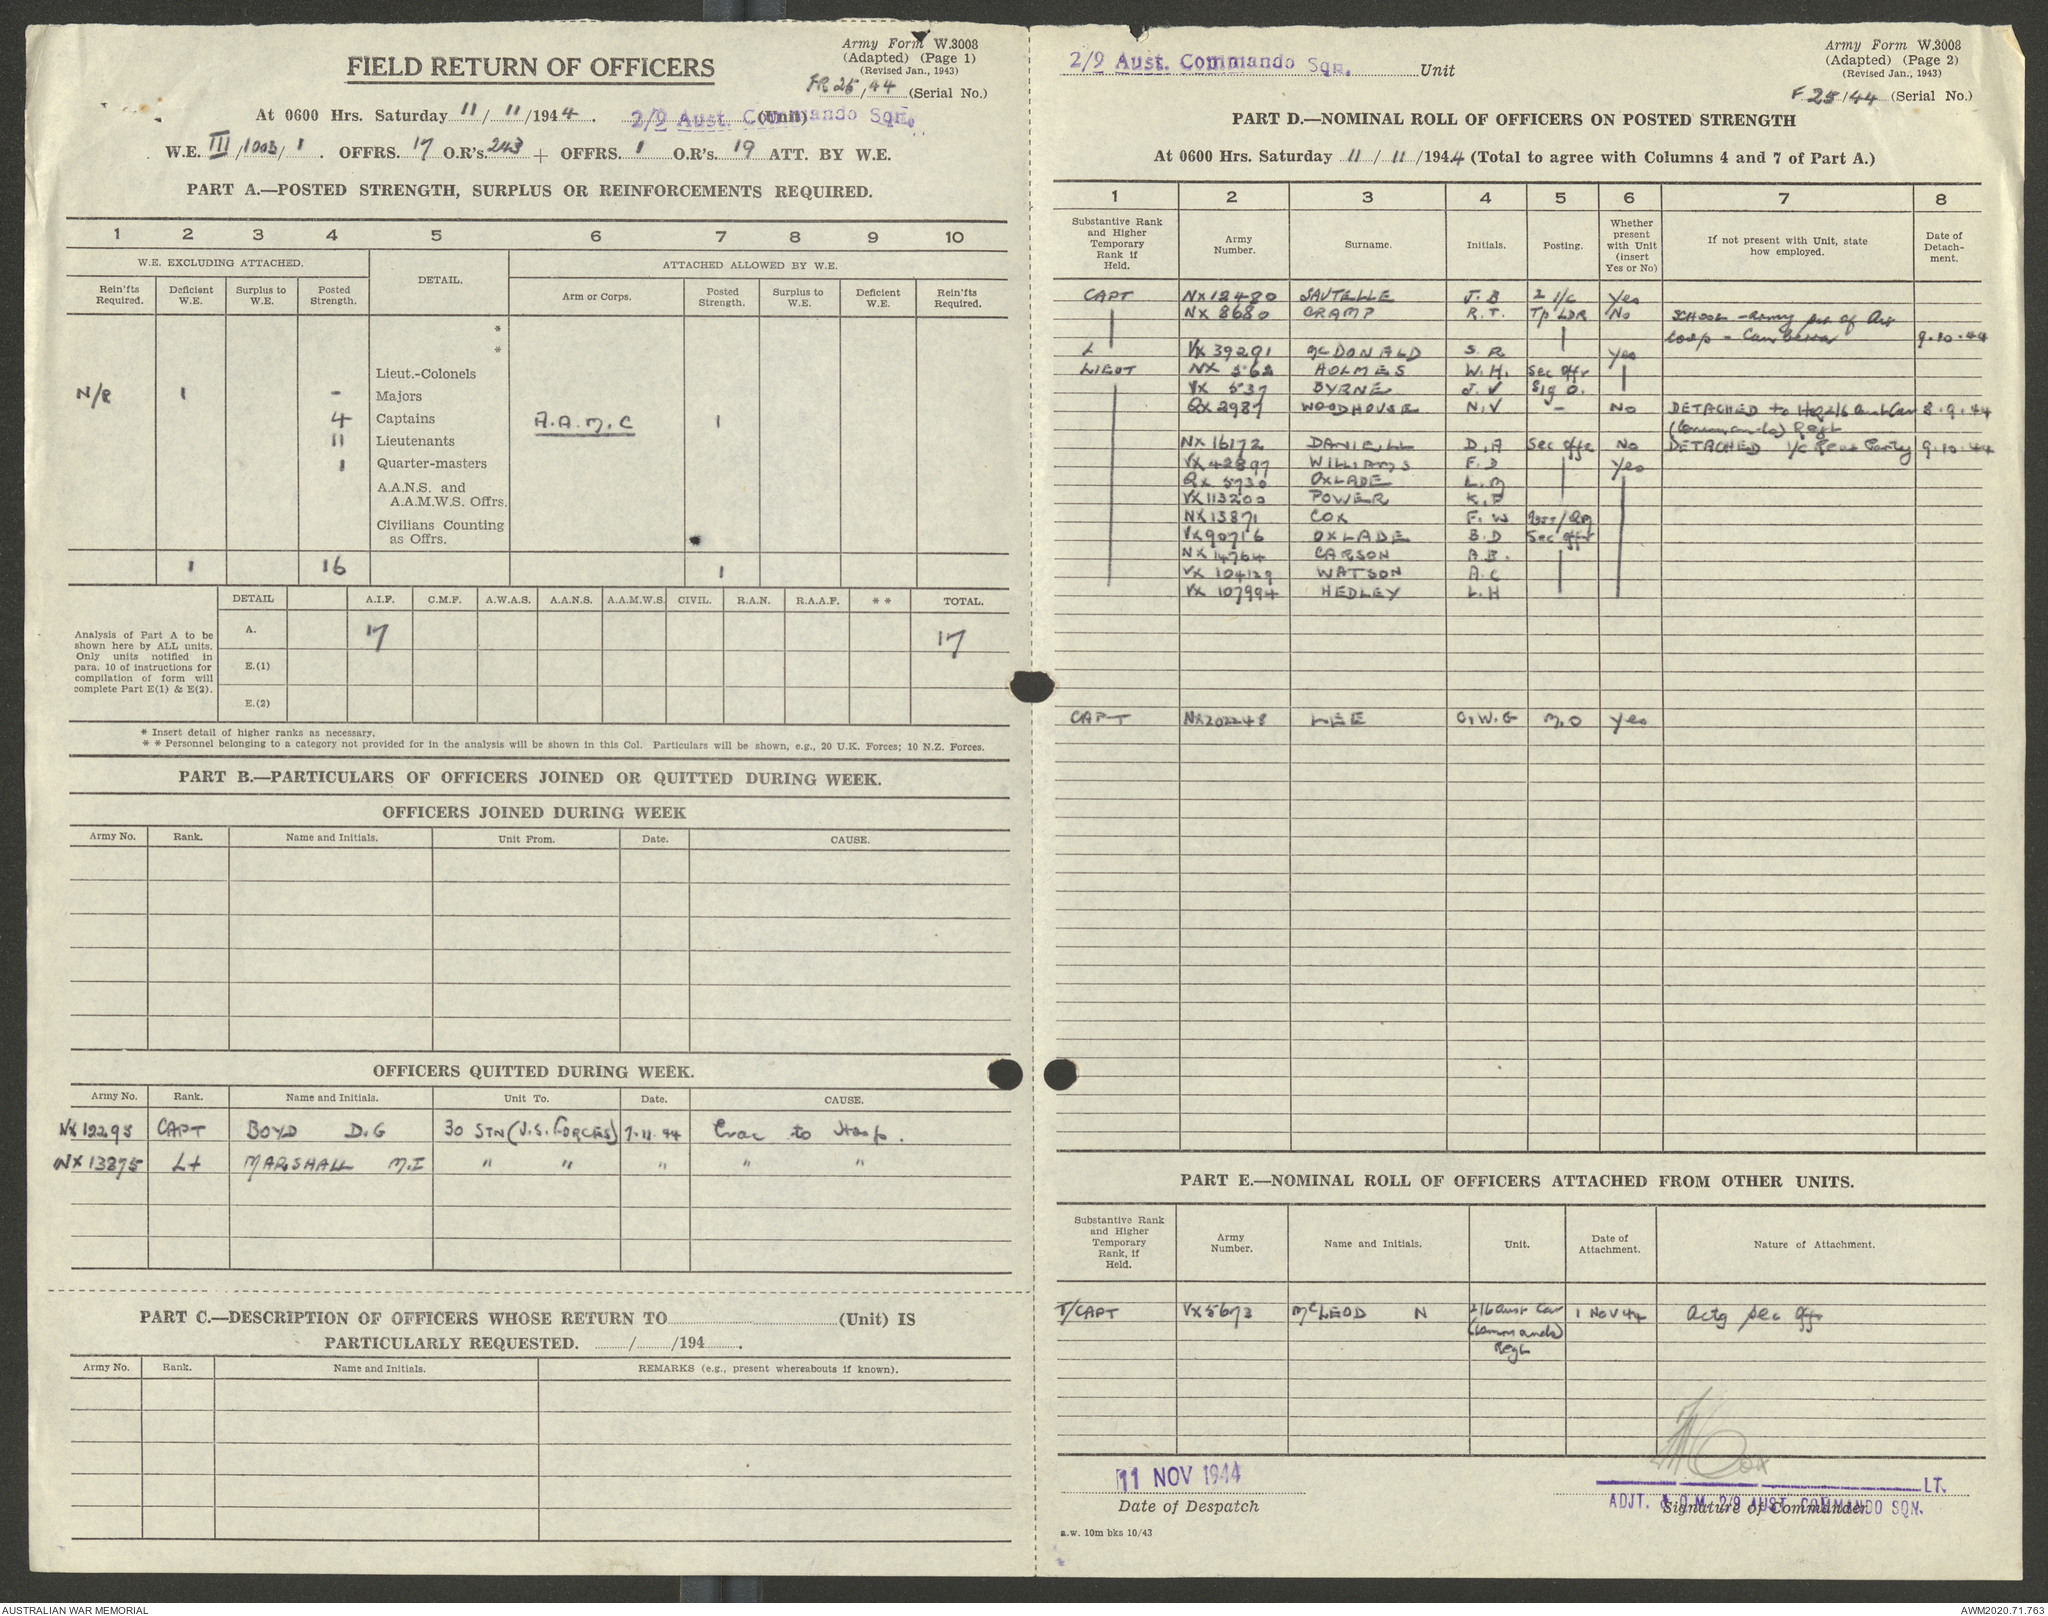 Army Form W.3008
(Adapted) (Page 1)
(Revised Jan., 1943)
FIELD RETURN OF OFFICERS
FR 25/44 (Serial No.)
At 0600 Hrs. Saturday 11/11/1944. 2/9 Aust. Commando Sqn. (Unit)
W.E. III/1003/1. OFFRS. 17 O.R's. 243 + OFFRS. 1 O.R's. 19 ATT. BY W.E.
PART A.—POSTED STRENGTH, SURPLUS OR REINFORCEMENTS REQUIRED.
1 2 3 4 5 6 7 8 9 10
W.E. EXCLUDING ATTACHED. DETAIL. ATTACHED ALLOWED BY W.E.
Rein'fts Required. Deficient W.E. Surplus to W.E. Posted Strength. Arm or Corps. Posted Strength. Surplus to W.E. Deficient W.E. Rein'fts Required.
*
*
Lieut.-Colonels
N/R 1 - Majors
4 Captains A.A.M.C 1
11 Lieutenants
1 Quarter-masters
A.A.N.S. and
A.A.M.W.S. Offrs.
Civilians Counting
as Offrs.
1 16 1
DETAIL A.I.F. C.M.F. A.W.A.S. A.A.N.S. A.A.M.W.S. CIVIL. R.A.N. R.A.A.F. ** TOTAL.
Analysis of Part A to be
shown here by ALL units.
Only units notified in
para. 10 of instructions for
compilation of form will
complete Part E(1) & E(2).
A. 17 17
E.(1)
E.(2)
* Insert detail of higher ranks as necessary.
* * Personnel belonging to a category not provided for in the analysis will be shown in this Col. Particulars will be shown, e.g., 20 U.K. Forces; 10 N.Z. Forces.
PART B.—PARTICULARS OF OFFICERS JOINED OR QUITTED DURING WEEK.
OFFICERS JOINED DURING WEEK
Army No. Rank. Name and Initials. Unit From. Date. CAUSE.
OFFICERS QUITTED DURING WEEK.
Army No. Rank. Name and Initials. Unit To. Date. CAUSE.
NX12293 CAPT BOYD D.G 30 STN (U.S. FORCES) 7.11.44 Evac to Hosp.
NX13875 Lt MARSHALL M.I " " " " "
PART C.—DESCRIPTION OF OFFICERS WHOSE RETURN TO (Unit) IS
PARTICULARLY REQUESTED. / /194 .
Army No. Rank. Name and Initials. REMARKS (e.g., present whereabouts if known).
Army Form W.3008
(Adapted) (Page 2)
(Revised Jan., 1943)
2/9 Aust. Commando Sqn. Unit
F 25/44 (Serial No.)
PART D.—NOMINAL ROLL OF OFFICERS ON POSTED STRENGTH
At 0600 Hrs. Saturday 11/11/1944 (Total to agree with Columns 4 and 7 of Part A.)
1 2 3 4 5 6 7 8
Substantive Rank and Higher Temporary Rank if Held. Army Number. Surname. Initials. Posting. Whether present with Unit (insert Yes or No) If not present with Unit, state how employed. Date of Detachment.
CAPT NX12480 SAUTELLE J.B 2 I/C Yes
NX 8680 CRAMP R.T. Tp LDR No SCHOOL - Army
Coop - Canberra 9.10.44
VX 39291 McDONALD S.R Yes
LIEUT NX 562 HOLMES W.H. Sec Offr
VX 537 BYRNE J.V Sig O.
QX 2987 WOODHOUSE N.V - No DETACHED to HQ 2/6 Aust Cav 8.9.44
(Commando) Regt
NX 16172 DANIELL D.A Sec Offr No DETACHED I/C Rear Party 9.10.44
VX 42897 WILLIAMS F.D Yes
QX 5730 OXLADE L.M
VX 113200 POWER K.F
NX 13871 COX F.W QM
VX 90716 OXLADE B.D Sec Offr
NX 14764 CARSON A.B.
VX 104129 WATSON A.C
VX 107994 HEDLEY L.H
CAPT NX202248 LEE C.W.G M.O Yes
PART E.—NOMINAL ROLL OF OFFICERS ATTACHED FROM OTHER UNITS.
Substantive Rank and Higher Temporary Rank, if Held. Army Number. Name and Initials. Unit. Date of Attachment. Nature of Attachment.
T/CAPT VX5673 McLEOD N 2/6 Aust Cav 1 NOV 44 Actg Sec Offr
(Commando)
Regt
F W Cox
11 NOV 1944 LT.
ADJT. & Q.M. 2/9 AUST. COMMANDO SQN.
Date of Despatch Signature of Commander.
a.w. 10m bks 10/43
AUSTRALIAN WAR MEMORIAL AWM2020.71.763